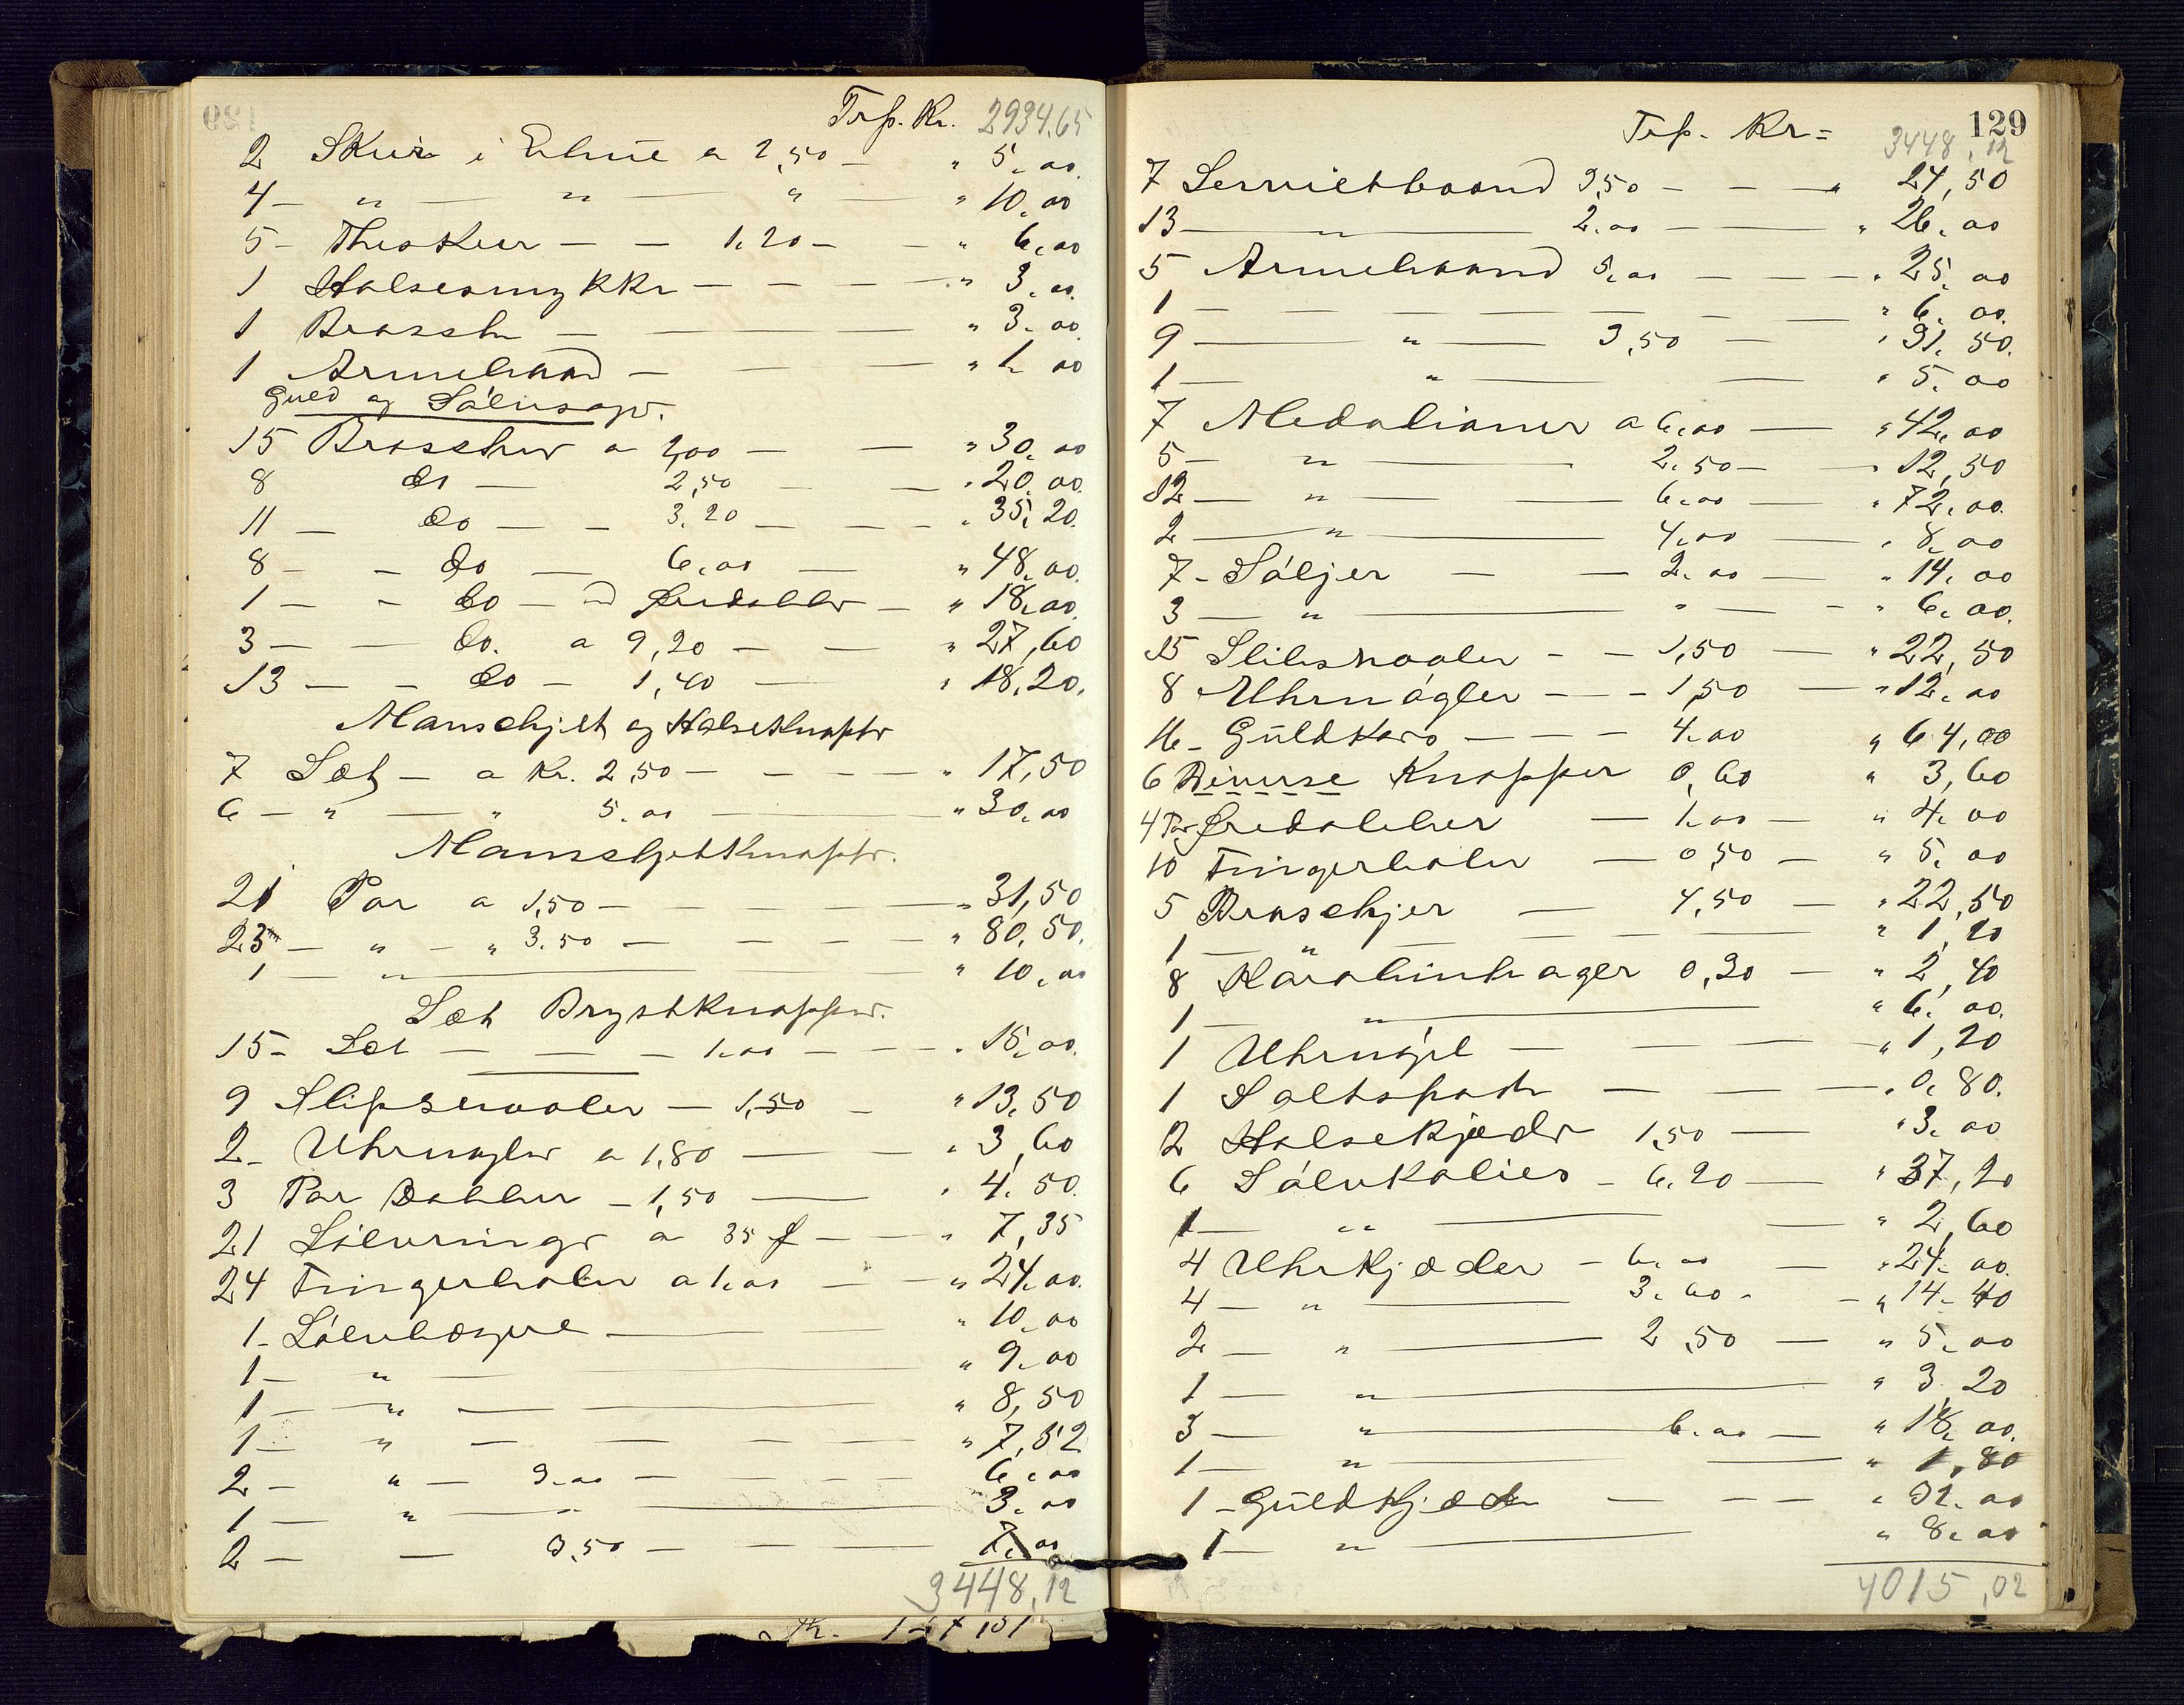 Trp. Kr. 2934,65
2 Skeer i Etuie a 2,50 — " 5,00
4 — " — " — " — " 10,00
5 - Theskeer — — 1,20 — — " 6,00
1 Halsesmykke — — — — " 3,00
1 Brosche — — — " 3,00
1 Armebaand — — — " 1,00
Guld og Sölvsager.
15 Broscher a 2,00 — — " 30,00
8 do — 2,50 — — " 20,00
11 — do — — 3,20 — — — " 35,20
8 — — do — 6,00 — " 48,00
1 — — do — Øredobber — " 18,00
3 — — do. a 9,20 — — " 27,60
13 — — do — 1,40 — " 18,20
Manschjet og Halseknapper
7 Sæt — a Kr. 2,50 — — — — " 17,50
6 — " — " 5,00 — " 30,00
Manschjetknapper.
21 Par a 1,50 — — — — " 31,50
23 — " — " 3,50 — — — — " 80,50
1 — " — " 10,00
Sæt Brystknapper.
15 - Sæt — — — 1,00 — — — " 15,00
9 Slipsenaaler — 1,50 — " 13,50
2 - Uhrnøgler a 1,80 — — " 3,60
3 Par Dobber — 1,50 — " 4,50
21 Sölvringe a 35 ø — — " 7,35
24 Fingerbøler a 1,00 — — " 24,00
1 - Sölvbæger — " 10,00
1 — " — " 9,00
1 — " — — " 8,50
1 — " — — — — " 7,52
2 — " — 3,00 — — — — 6,00
1 — " — " — 3,00
2 — — 3,50 — — — — 7,00
3448,12
129
Trp. Kr =
3448,12
7 Serviethaand 3,50 — — — " 24,50
13 — " — 2,00 — — " 26,00
5 Armebaand 5,00 — — — " 25,00
1 — — — — — — — " 6,00
9 — " — 3,50 — " 31,50
1 — " — — " 5,00
7 Medalioner a 6,00 — " 42,00
5 — " — 2,50 — — " 12,50
12 — " — — 6,00 — " 72,00
2 — " — 4,00 — " 8,00
7 - Söljer — — 2,00 — " 14,00
3 — " — " — — " 6,00
15 Slibsnaaler — — 1,50 — " 22,50
8 Uhrnögler — — 1,50 — " 12,00
16 - Guldkors — — — 4,00 " 64,00
6 Diverse Knapper 0,60 " 3,60
4 Par Øredobber — 1,00 — " 4,00
10 Fingerbøler — 0,50 — " 5,00
5 Broschjer — 4,50 — " 22,50
1 — " — — — — " 1,20
8 0,30 — " 2,40
1 — " — " 6,00
1 Uhrnögel — — — — " 1,20
1 — — — " 0,80
2 Halsekjæder 1,50 — " 3,00
6 Sölvkolier — 6,20 — " 37,20
1 — " — — " 2,60
4 Uhrkjæder — 6,00 — " 24,00
4 — " — 3,60 - — " 14,40
2 — " — 2,50 — " 5,00
1 — " — " 3,20
3 — " — 6,00 — " 18,00
1 — " — — " 1,80
1 - Guldkjæde — — — " 32,00
1 — " — " 8,00
4015,02